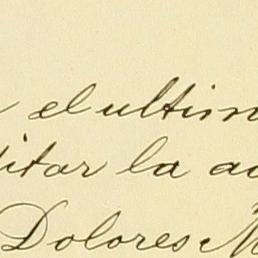 el ultim
itar la a
Dolores M